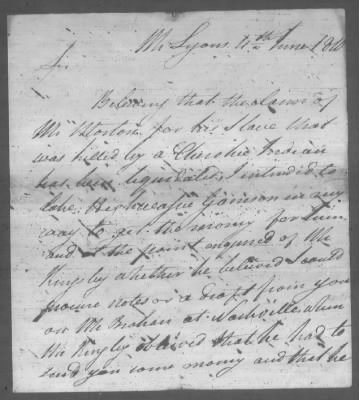 Mr Lyons 11th June 1810
Sir
Believing that the claim of
Mr Horton for his Slave that
was killed by a Cherokee Indian
had been liquidated, I intended to
take Garrison in my
way to get the money for him
and at the point enquired of Mr
Kingsley whether he believed I could
procure notes or a draft from you
on Mr Brahan at Nashville when
Mr Kingsley observed that he had to
send you some money and that he